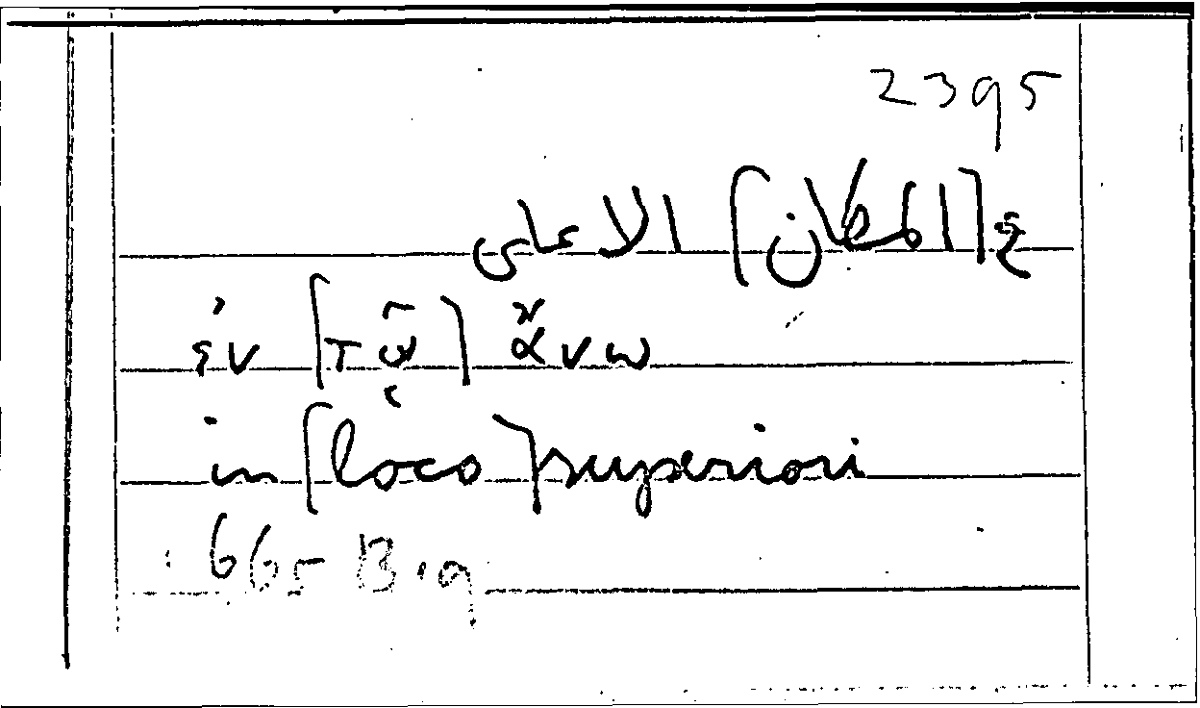 2395
في [المكان] الاعلى
ἐν [τῷ] ἄνω
in [loco] superiori
665 B 19